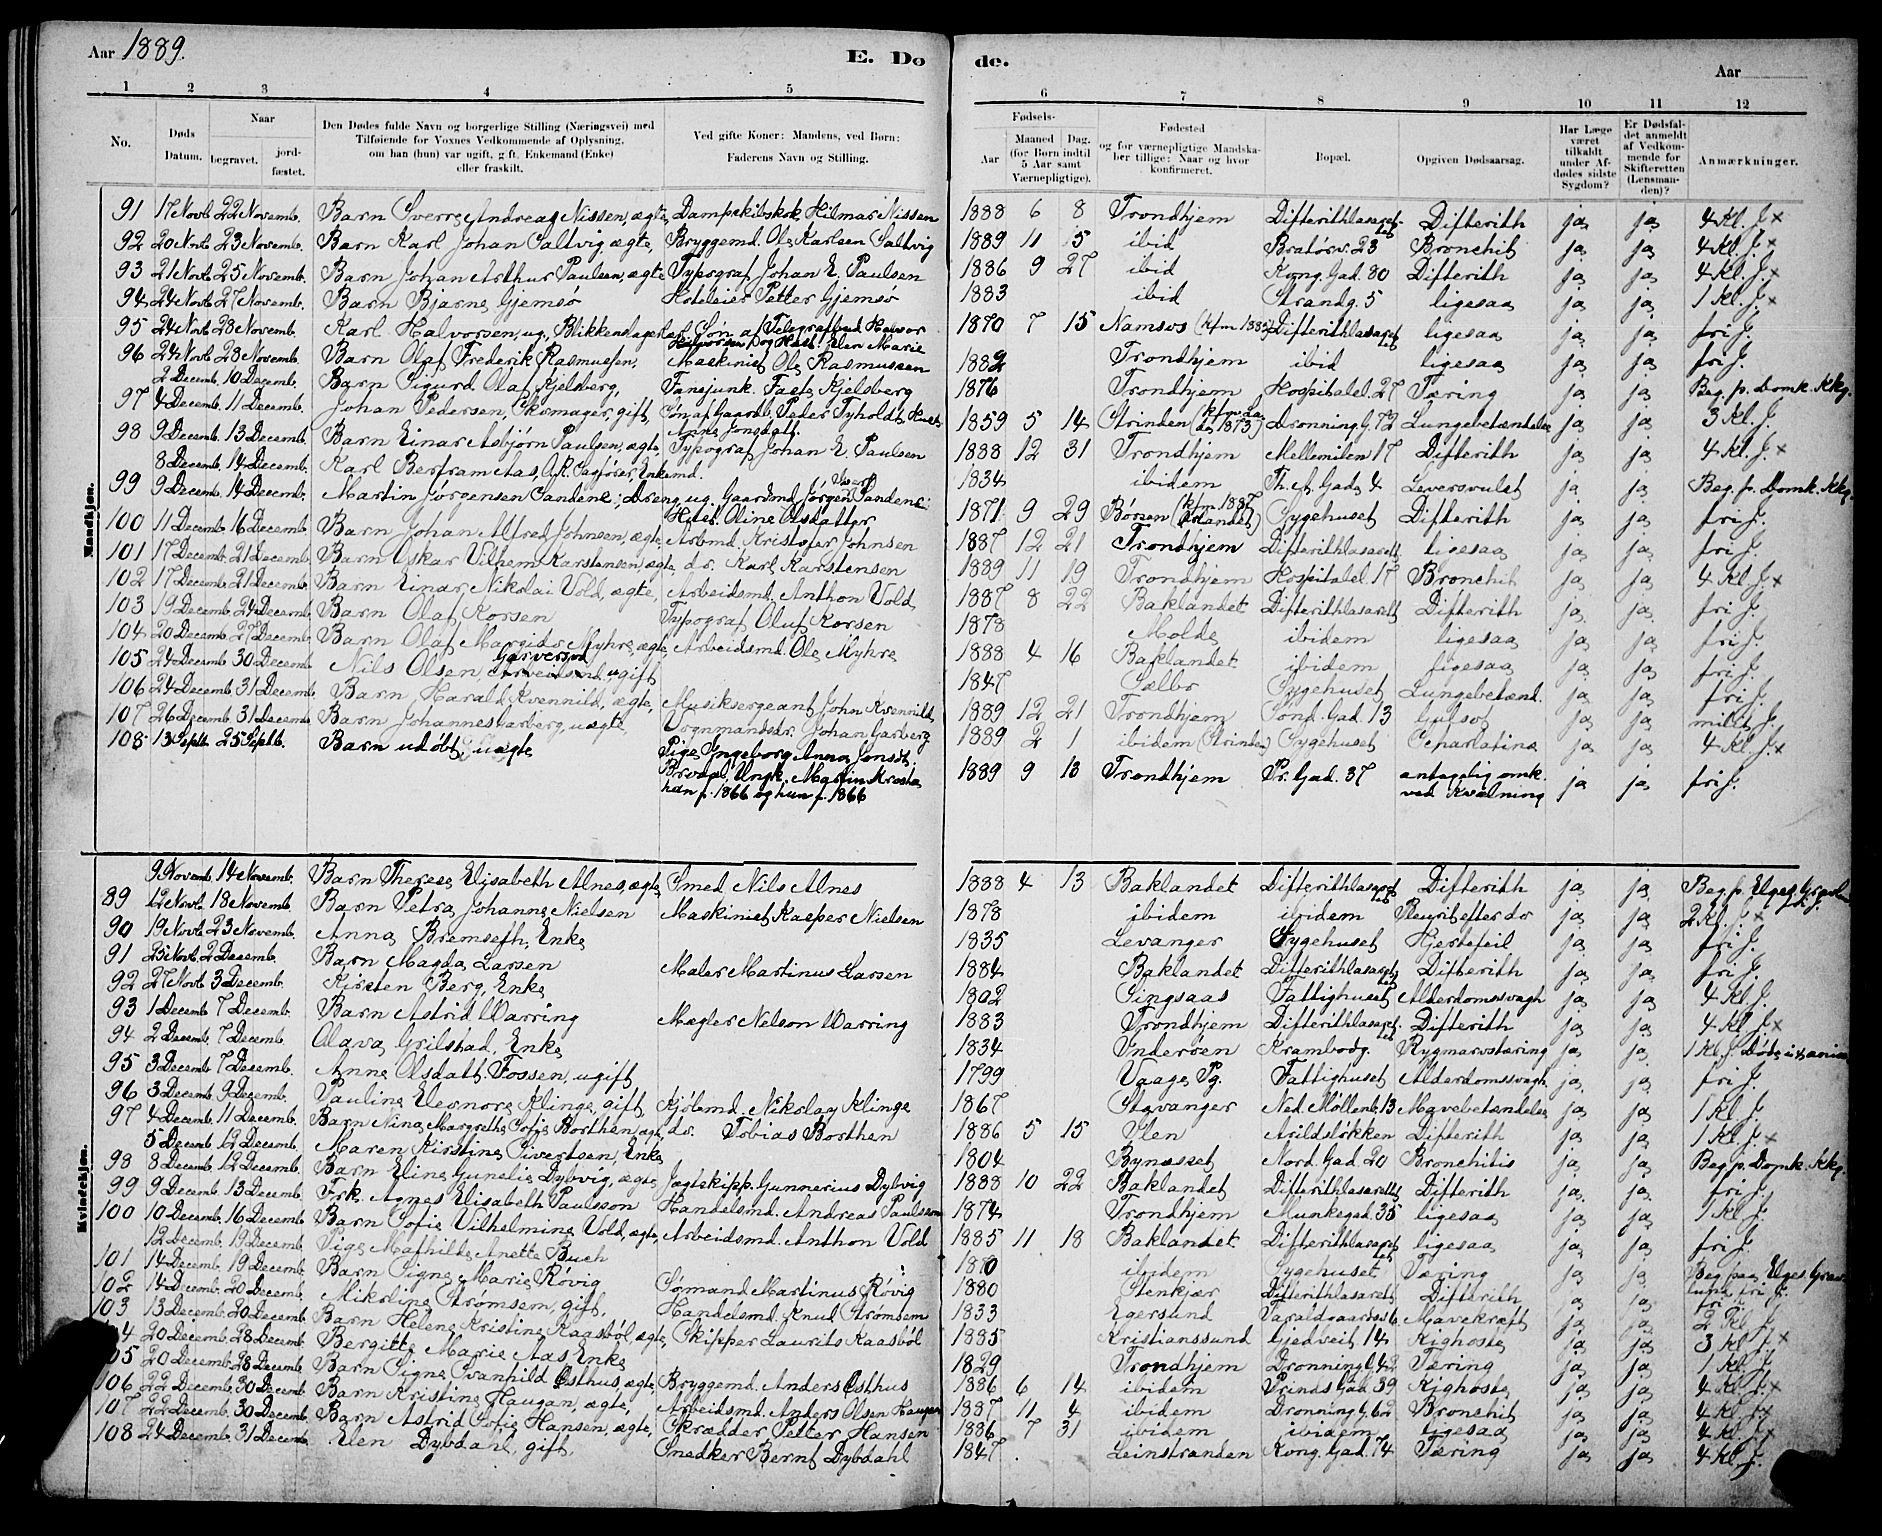 Aar 1889.
E. Do
de.
Aar
1 2 3 4 5 6 7 8 9 10 11 12
No.
Døds Datum.
Naar
begravet.
jordfæstet.
Den Dødes fulde Navn og borgerlige Stilling (Næringsvei) med
Tilføiende for Voxnes Vedkommende af Oplysning,
om han (hun) var ugift, gift, Enkemand (Enke)
eller fraskilt.
Ved gifte Koner: Mandens, ved Børn:
Faderens Navn og Stilling.
Fødsels-
Aar
Maaned Dag.
(for Børn indtil
5 Aar samt
Værnepligtige).
Fødested
og for værnepligtige Mandskaber tillige: Naar og hvor
konfirmeret.
Bopæl.
Opgiven Dødsaarsag.
Har Læge
været
tilkaldt
under Afdødes sidste
Sygdom?
Er Dødsfaldet anmeldt
af Vedkommende for
Skifteretten
(Lensmanden)?
Anmærkninger.
Mandkjøn.
91 17 Novb 22 Novemb. Barn Sverre Andreas Nissen, ægte, Dampskibskok Hilmar Nissen 1888 6 8 Trondhjem Difterithlasaret- tet Difterith ja ja 4 Kl. J. x
92 20 Novb 23 Novemb. Barn Karl Johan Saltvig ægte, Bryggemd. Ole Karlsen Saltvig 1889 11 5 ibid Bratörv. 23 Bronchit ja ja 4 Kl. J. x
93 21 Novb 25 Novemb. Barn Johan Arthur Paulsen, ægte Typograf Johan E. Paulsen 1886 9 27 ibid Kong. Gad. 80 Difterith ja ja 4 Kl. J. x
94 24 Novb 27 Novemb. Barn Bjarne Gjemsø Hoteleier Petter Gjemsø 1883 ibid Strandg. 5 ligesaa ja ja 1 Kl. J. x
95 24 Novb 28 Novemb. Karl Halvorsen, ug. Blikkenslager Søn af Telegrafbud Halvor Halvorsen og Hust. Elen Marie 1870 7 15 Namsos (kfm 1885) Difterithlasaret tet ligesaa ja ja fri J.
96 24 Novb 28 Novemb. Barn Olaf Frederik Rasmussen, Maskinist Ole Rasmussen 1882 Trondhjem ibid ligesaa ja ja fri J.
2 Decemb. 10 Decemb. Barn Sigurd Olaf Kjelsberg, Fansjunk. Faste Kjelsberg 1876 Trondhjem Hospitalsl. 27 Tæring ja ja Beg. p. Domk. Kkg.
97 4 Decemb. 11 Decemb. Johan Pedersen, Skomager, gift, Søn af Gaardb. Peder Tyholdt, Hust. Anne Jonsdatt. 1859 5 14 Strinden (kfm 1873) Dronning. G. 72 Lungebetændelse ja ja 3 Kl. J.
98 9 Decemb. 13 Decemb. Barn Einar Asbjørn Paulsen, ægte, Typograf Johan E. Paulsen 1888 12 31 Trondhjem Mellemilen 17 Difterith ja ja 4 Kl. J. x
8 Decemb. 14 Decemb. Karl Bertram Aas, Enkemd. 1834 ibidem Th. st. Gade 4 Leversvulst ja ja Beg. p. Domk. Kkg.
99 9 Decemb. 14 Decemb. Martin Jørgensen Sandene, Dreng, ug. Gaardmd. Jørgen Iversen Sandene; Hust. Oline Olsdatter 1871 9 29 Børsen (kfm 1887 Ørlandet) Sygehuset Difterith ja ja fri J.
100 11 Decemb 16 Decemb. Barn Johan Alfred Johnsen, ægte, Arbmd. Kristofer Johnsen 1887 12 21 Trondhjem Difterithlasarett ligesaa ja ja fri J.
101 17 Decemb 21 Decemb. Barn Oskar Vilhem Karstensen, ægte, do. Karl Karstensen 1889 11 19 Trondhjem Hospitalsl. 17 Bronchit ja ja 4 Kl. J. x
102 17 Decemb 21 Decemb. Barn Einar Nikolai Vold, ægte, Arbeidsmd. Anthon Vold 1887 8 22 Baklandet Difterithlasarett Difterith ja ja fri J.
103 19 Decemb 24 Decemb. Barn Olaf Korsen Typograf Oluf Korsen 1878 Molde ibidem ligesaa ja ja fri J.
104 20 Decemb 27 Decemb. Barn Olaf Margido Myhre, ægte, Arbeidsmd. Ole Myhre 1888 4 16 Baklandet ibidem ligesaa ja ja fri J.
105 24 Decemb 30 Decemb. Nils Olsen, Garversvd. Arbeidsmd., ugift 1847 Sælbo Sygehuset Lungebetænd. ja ja fri J.
106 24 Decemb 31 Decemb. Barn Harald Kvennild, ægte, Musiksergeant John Kvennild, 1889 12 21 Trondhjem Sond. Gad. 13 Gulsot ja ja milit. J.
107 26 Decemb 31 Decemb. Barn Johannes Garberg, uægte, Vognmandsdr. Johan Garberg 1889 2 1 ibidem (Strinden) Sygehuset Scharlatina ja ja 4 Kl. J. x
108 13 Septb 25 Septb. Barn udøbt, uægte Pige Ingeborg Anna Jonsdt. Brodal, Ungk. Martin Krosta han f. 1866 og hun f. 1866 1889 9 13 Trondhjem Pr. Gad. 37 antagelig omk. ved Kvælning ja ja fri J.
Kvindekjøn.
9 Novemb. 14 Novemb. Barn Therese Elisabeth Alnes, ægte, Smed Nils Alnes 1888 4 13 Baklandet Difterithlasaret tet Difterith ja ja Beg. p. Elges. Gravl. fri J.
89 12 Novb. 18 Novemb. Barn Petra Johanne Nielsen Maskinist Kasper Nielsen 1878 ibidem ibidem Pleurit efter do ja ja 2 Kl. J. x
90 19 Novb 23 Novemb. Anna Bremseth, Enke 1835 Levanger Sygehuset Hjertefeil ja ja fri J.
91 25 Novb. 2 Decemb. Barn Magda Larsen Maler Martinus Larsen 1884 Baklandet Difterithlasaret tet Difterith ja ja fri J.
92 27 Novb 3 Decemb. Kirsten Berg, Enke 1802 Singsaas Fattighuset Alderdomssvagh ja ja 4 Kl. J.
93 1 Decemb 7 Decemb. Barn Astrid Warring Mægler Nelson Warring 1883 Trondhjem Difterithlasaret. tet Difterith ja ja 4 Kl. J. x
94 2 Decemb. 7 Decemb. Olava Grilstad, Enke 1834 Ynderøen Krambodg. Rygmarvstæring ja ja 1 Kl. J.
95 3 Decemb 7 Desemb. Anne Olsdatt. Fossen, ugift 1799 Vaage Pg. Fattighuset Alderdomssvagh. ja ja fri J.
96 3 Decemb. 9 Decemb. Pauline Eleonore Klinge, gift Kjølsmd. Nikolay Klinge 1867 Stavanger Ned. Møllenb. 13 Mavebetændelse ja ja 1 Kl. J.
97 4 Decemb. 11 Decemb. Barn Nina Margrethe Sofie Borthen, ægte, do. Tobias Borthen 1886 5 15 Ilen Arildsløkken Difterith ja ja 1 Kl. J. x
5 Decemb 12 Decemb. Maren Kirstine Sivertsen, Enke 1804 Bynesset Nord. Gad. 20 Bronchitis ja ja Beg. p. Domk. Kkg.
98 8 Decemb. 12 Decemb. Barn Eline Gunelie Dybvig, ægte, Jægtskipp. Gunnerius Dybvig 1888 10 22 Baklandet Difterithlasarett Difterith ja ja fri J.
99 9 Decemb. 13 Decemb. Frk. Agnes Elisabeth Paulsson Handelsmd. Andreas Paulsson 1874 Trondhjem Munkegad. 35 ligesaa ja ja 1 Kl. J.
100 10 Decemb. 16 Decemb. Barn Sofie Vilhelmine Vold, ægte, Arbeidsmd. Anthon Vold 1885 11 18 Baklandet Difterithlasaret tet ligesaa ja ja fri J.
12 Decemb. 19 Decemb. Pige Mathilde Anette Buch 1870 ibidem Sygehuset Tæring ja ja Beg. paa Elges. Gravlund, fri J.
101 14 Decemb. 19 Decemb. Barn Signe Marie Røvig Sømand Martinus Røvig 1880 Stenkjær Difterithlasarett Difterith ja ja fri J.
102 14 Decemb. 20 Decemb. Mikoline Strømsem, gift, Handelsmd. Knud Strømsem 1833 Egersund Mavekræft ja ja 2 Kl. J.
103 13 Decemb. 20 Decemb. Barn Helene Kristine Kaasbøl, ægte, Skipper Laurits Kaasbøl 1885 Kristianssund Gjedveit 14 Kighoste ja ja 3 Kl. J. x
104 20 Decemb. 28 Decemb. Bergitte Marie Aas Enke 1829 Trondhjem Dronning. G. 42 Tæring ja ja 1 Kl. J.
105 20 Decemb. 28 Decemb. Barn Signe Svanhild Østhus, ægte, Bryggemd. Anders Østhus 1886 6 14 ibidem Prinds. Gad 39 Kighoste ja ja 4 Kl. J. x
106 22 Decemb. 30 Decemb. Barn Kristine Haugan, ægte, Arbeidsmd. Anders Olsen Haugan 1887 11 4 ibidem Dronning. G. 62 Bronchit ja ja 4 Kl. J. x
107 22 Decemb. 30 Decemb. Barn Astrid Sofie Hansen, ægte, Skrædder Petter Hansen 1886 7 31 ibidem ibidem ligesaa ja ja 4 Kl. J. x
108 24 Decemb. 31 Decemb. Elen Dybdahl, gift, Snedker Bernt Dybdahl 1847 Leinstranden Kong. Gad. 74 Tæring ja ja 4 Kl. J.